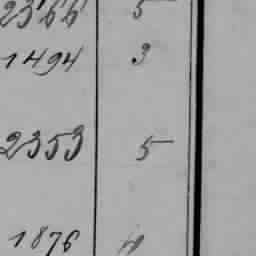 2366 5
1494 3
2353 5
1876 4